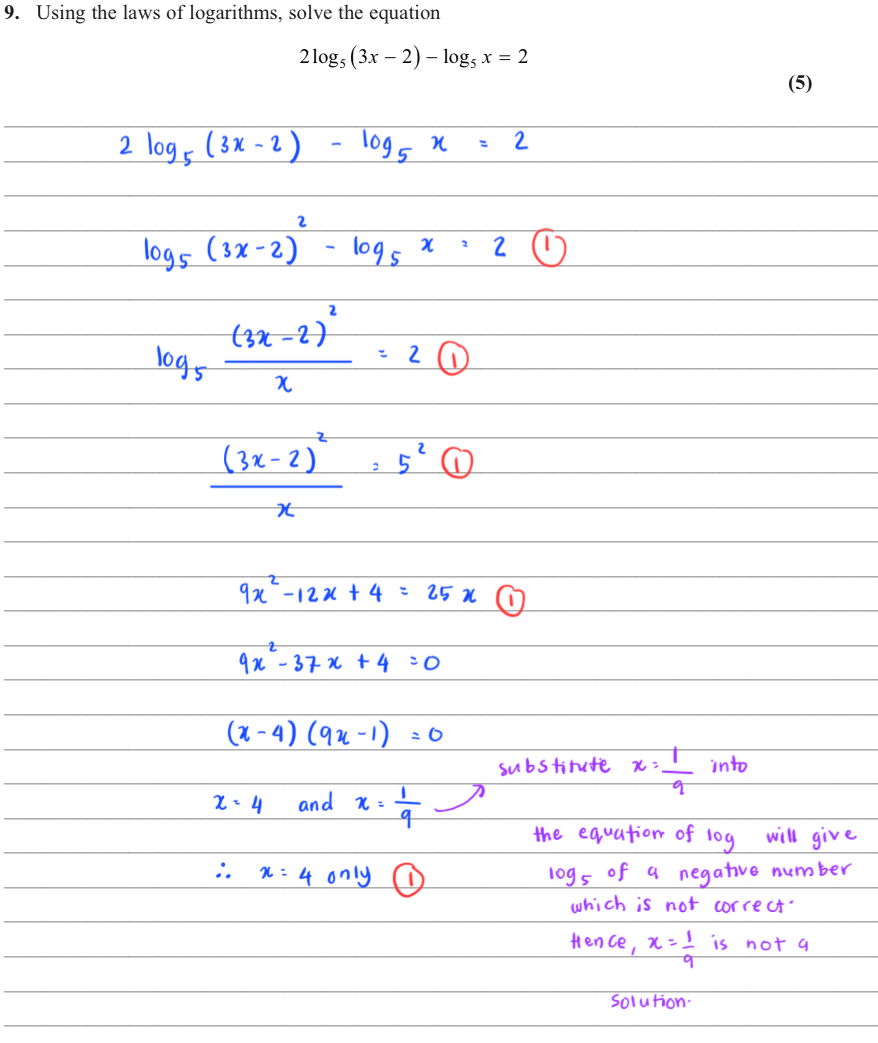 9. Using the laws of logarithms, solve the equation
2log₅(3x − 2) − log₅ x = 2
(5)
2 log₅ (3x - 2) - log₅ x = 2
log₅ (3x - 2)² - log₅ x = 2 ①
log₅ (3x - 2)² / x = 2 ①
(3x - 2)² / x = 5² ①
9x² - 12x + 4 = 25x ①
9x² - 37x + 4 = 0
(x - 4)(9x - 1) = 0
x = 4 and x = 1/9
∴ x = 4 only ①
substitute x = 1/9 into
the equation of log will give
log₅ of a negative number
which is not correct.
Hence, x = 1/9 is not a
solution.